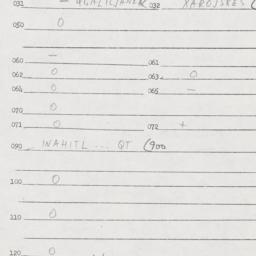 031 032
050 0
060 — 061
062 0 063 0
064 0 065 —
070 0
071 0 072 +
090 WAHITL ... QT (900
100 0
110 0
120 0